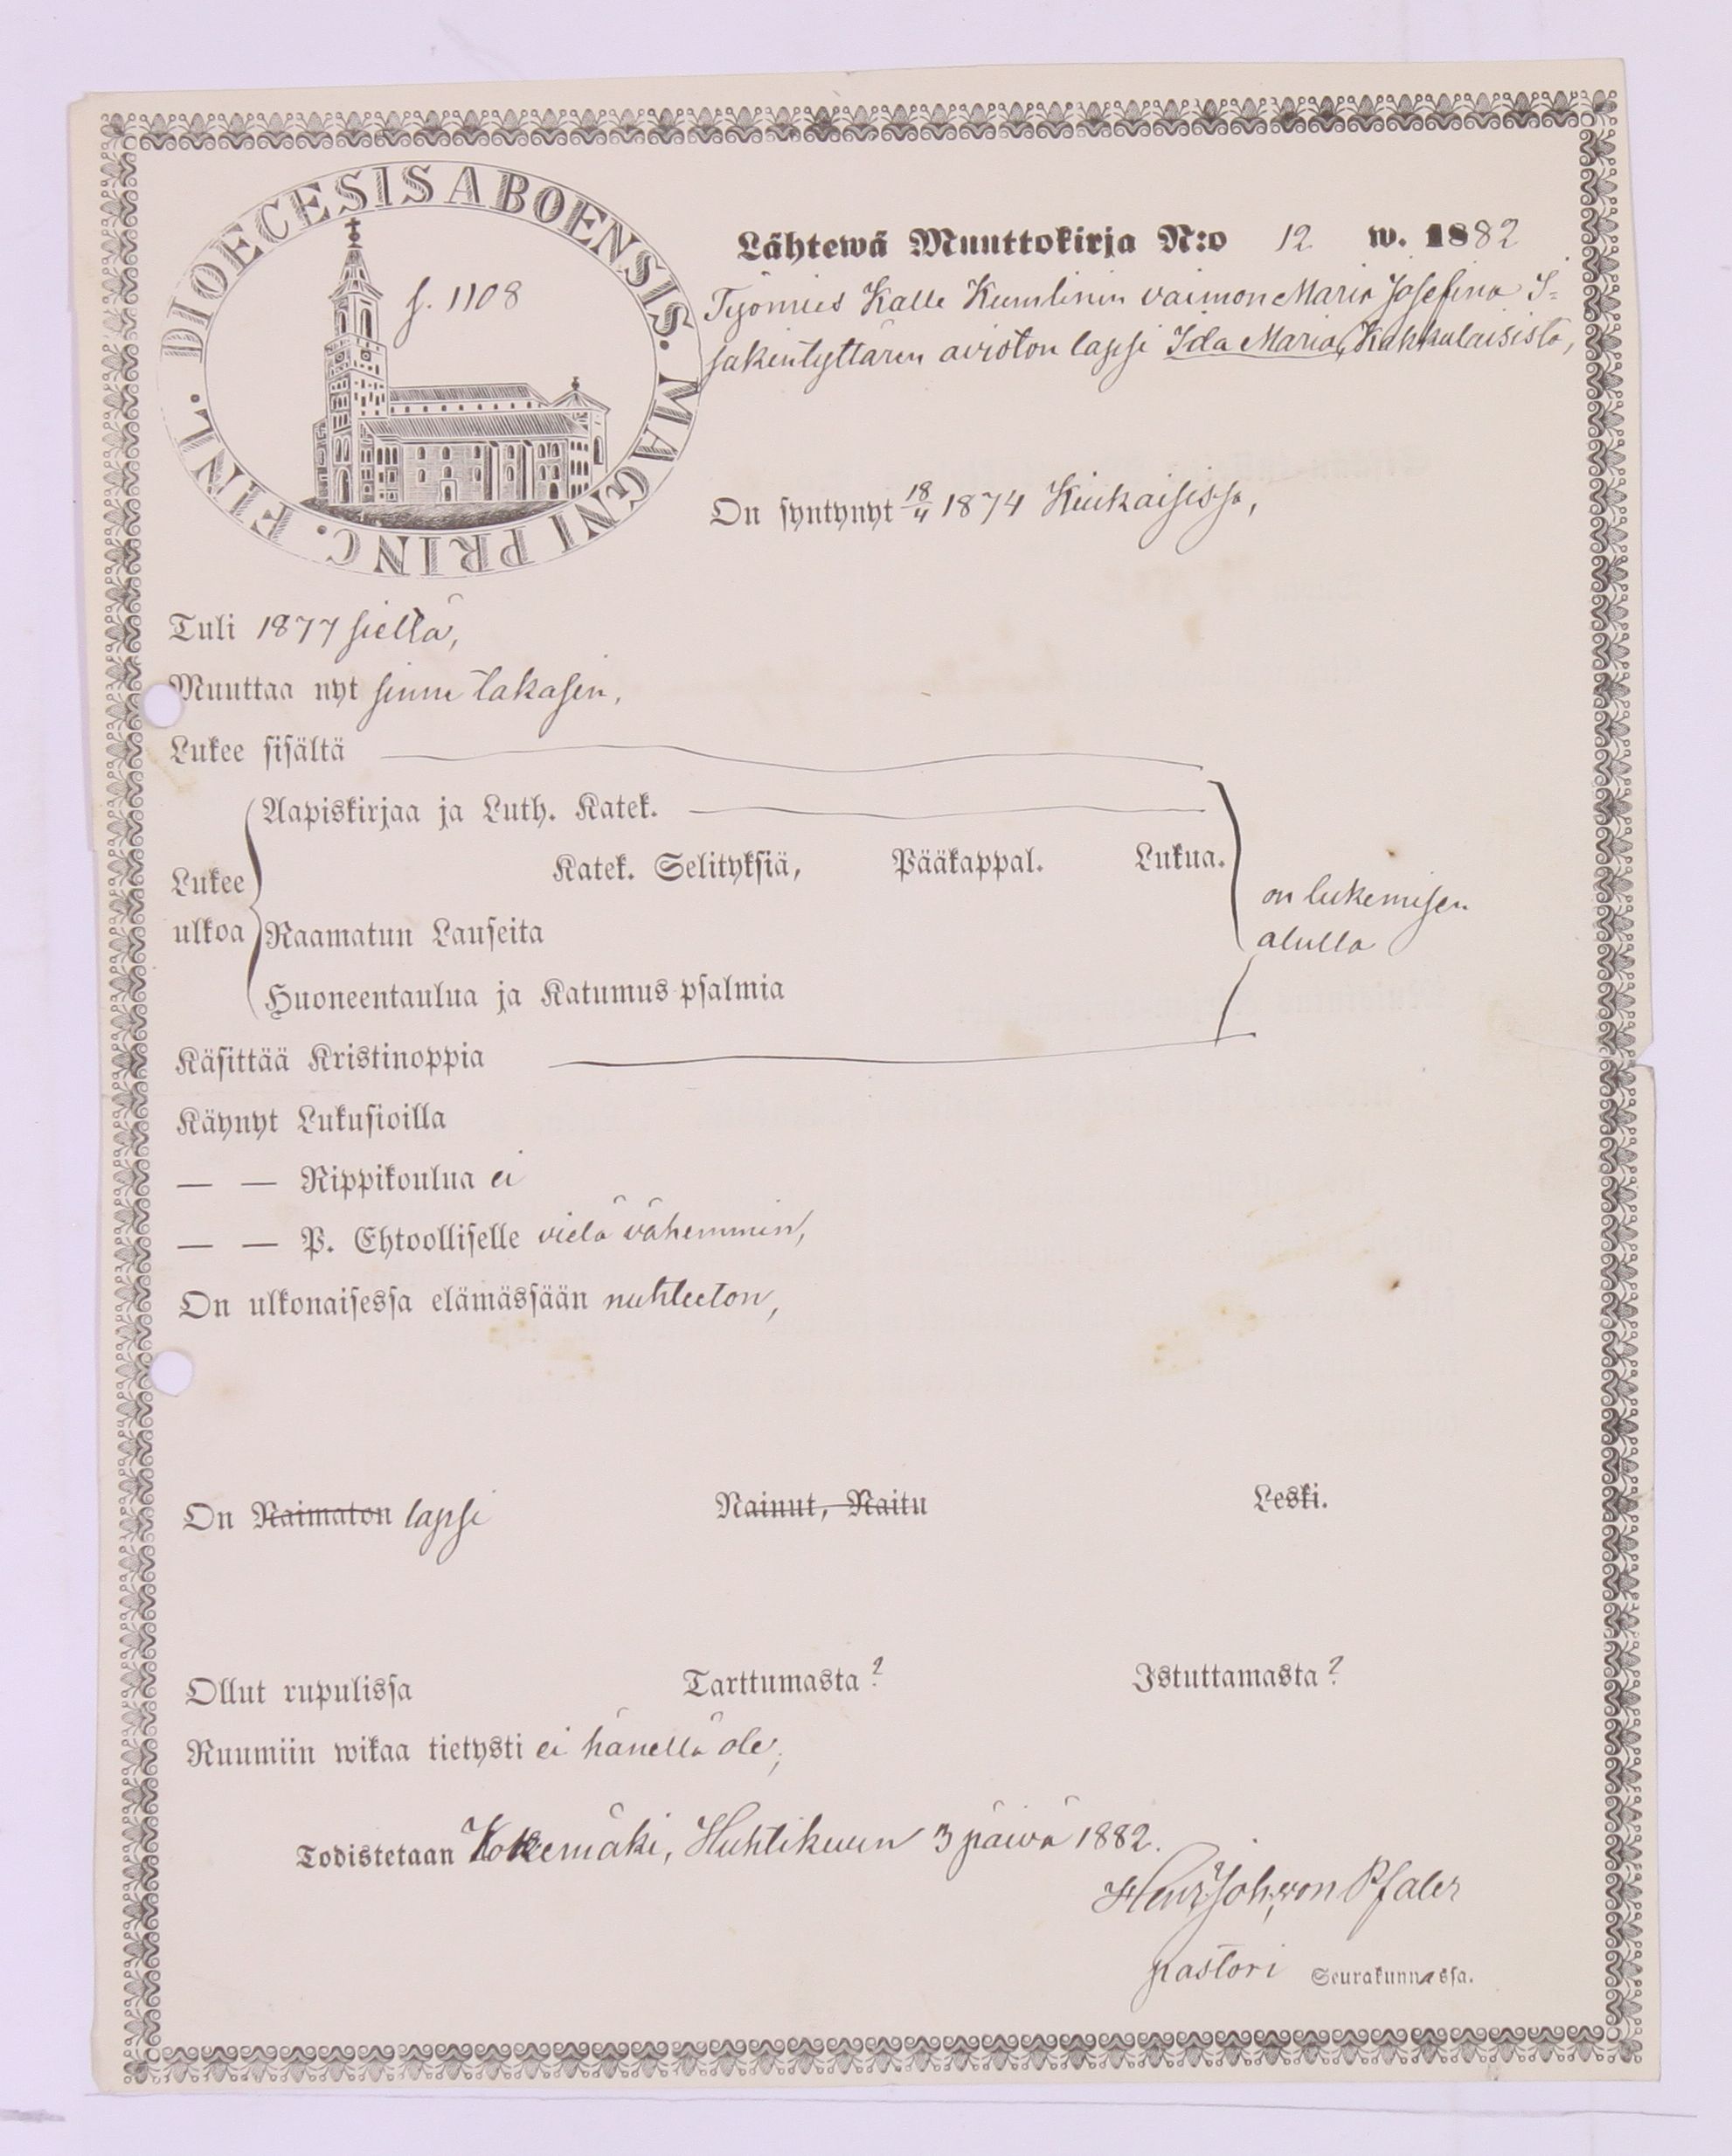 DIOECESIS ABOENSIS. MAGNI PRINC. FINL.
s. 1108
Lähtewä Muuttokirja N:o 12 w. 1882
Työmies Kalle Kumlinin vaimon Maria Josefina I=
sakintyttären avioton lapsi Ida Maria, Kakkulaisista,
On syntynyt 18/4 1874 Kiukaisissa,
Tuli 1877 sieltä,
Muuttaa nyt sinne takasin,
Lukee sisältä
Aapiskirjaa ja Luth. Katek.
Katek. Selityksiä, Pääkappal. Lukua.
Lukee ulkoa
on lukemisen
alulla
Raamatun Lauseita
Huoneentaulua ja Katumus psalmia
Käsittää Kristinoppia
Käynyt Lukusioilla
— — Rippikoulua ei
— — P. Ehtoolliselle vielä vähemmin,
On ulkonaisessa elämässään nuhteeton,
On Naimaton lapsi Nainut, Naitu Leski.
Ollut rupulissa Tarttumasta? Istuttamasta?
Ruumiin wikaa tietysti ei hänellä ole,
Todistetaan Kokemäki, Huhtikuun 3 päivä 1882.
Henr. Joh. von Pfaler
pastori Seurakunnassa.